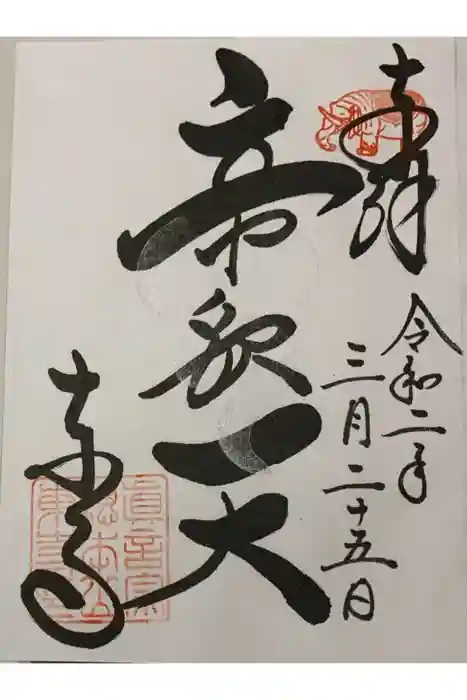 奉拝
令和二年
三月二十五日
帝釈天
東寺